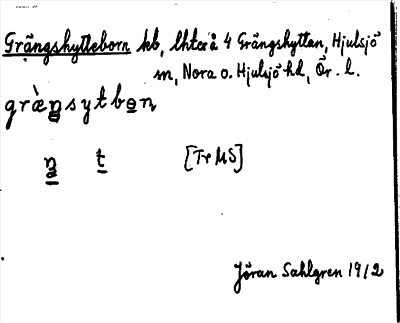 Grängshytteborn hb, lhtex å 4 Grängshyttan, Hjulsjö
sn, Nora o. Hjulsjö hd, Ör. l.
græ̀ŋsytbɵn
ŋ t [Tr MS]
Jöran Sahlgren 1912